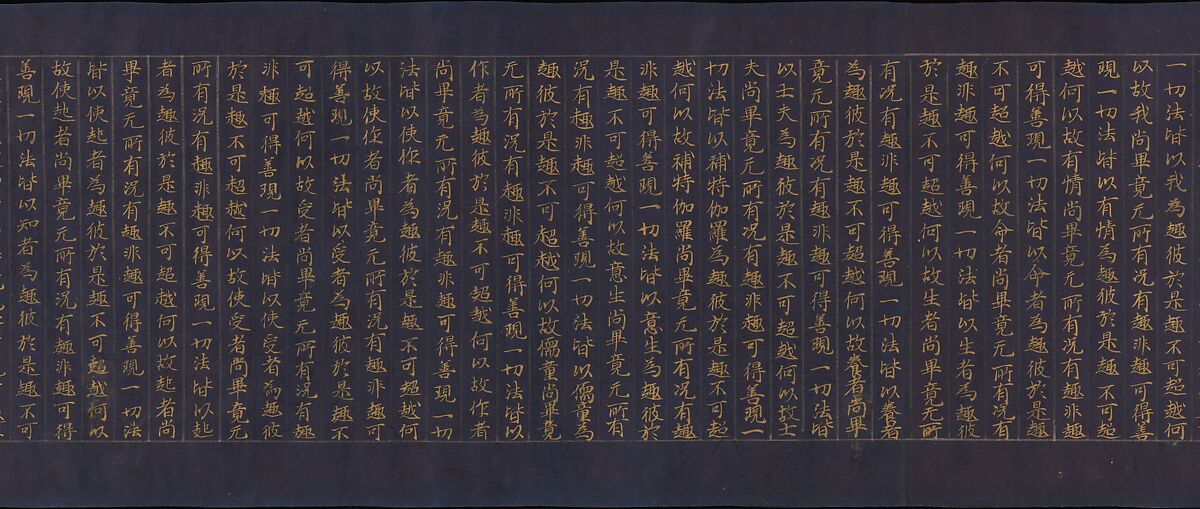 一切法皆以我為趣彼於是趣不可超越何
以故我尚畢竟无所有況有趣非趣可得善
現一切法皆以有情為趣彼於是趣不可超
越何以故有情尚畢竟无所有況有趣非趣
可得善現一切法皆以命者為趣彼於是趣
不可超越何以故命者尚畢竟无所有況有
趣非趣可得善現一切法皆以生者為趣彼
於是趣不可超越何以故生者尚畢竟无所
有況有趣非趣可得善現一切法皆以養者
為趣彼於是趣不可超越何以故養者尚畢
竟无所有況有趣非趣可得善現一切法皆
以士夫為趣彼於是趣不可超越何以故士
夫尚畢竟无所有況有趣非趣可得善現一
切法皆以補特伽羅為趣彼於是趣不可超
越何以故補特伽羅尚畢竟无所有況有趣
非趣可得善現一切法皆以意生為趣彼於
是趣不可超越何以故意生尚畢竟无所有
況有趣非趣可得善現一切法皆以儒童為
趣彼於是趣不可超越何以故儒童尚畢竟
无所有況有趣非趣可得善現一切法皆以
作者為趣彼於是趣不可超越何以故作者
尚畢竟无所有況有趣非趣可得善現一切
法皆以使作者為趣彼於是趣不可超越何
以故使作者尚畢竟无所有況有趣非趣可
得善現一切法皆以受者為趣彼於是趣不
可超越何以故受者尚畢竟无所有況有趣
非趣可得善現一切法皆以使受者為趣彼
於是趣不可超越何以故使受者尚畢竟无
所有況有趣非趣可得善現一切法皆以起
者為趣彼於是趣不可超越何以故起者尚
畢竟无所有況有趣非趣可得善現一切法
皆以使起者為趣彼於是趣不可超越何以
故使起者尚畢竟无所有況有趣非趣可得
善現一切法皆以知者為趣彼於是趣不可